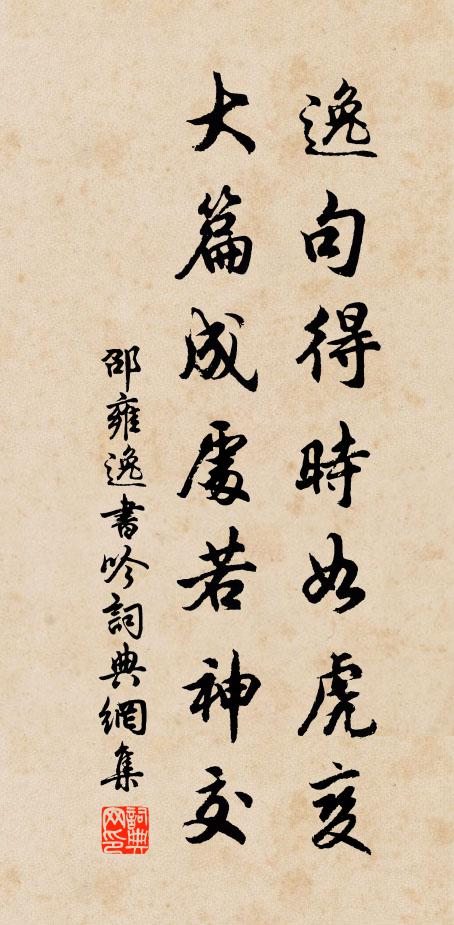 逸句得時如虎变
大篇成處若神交
邵雍逸書吟詞典網集
詞典网印